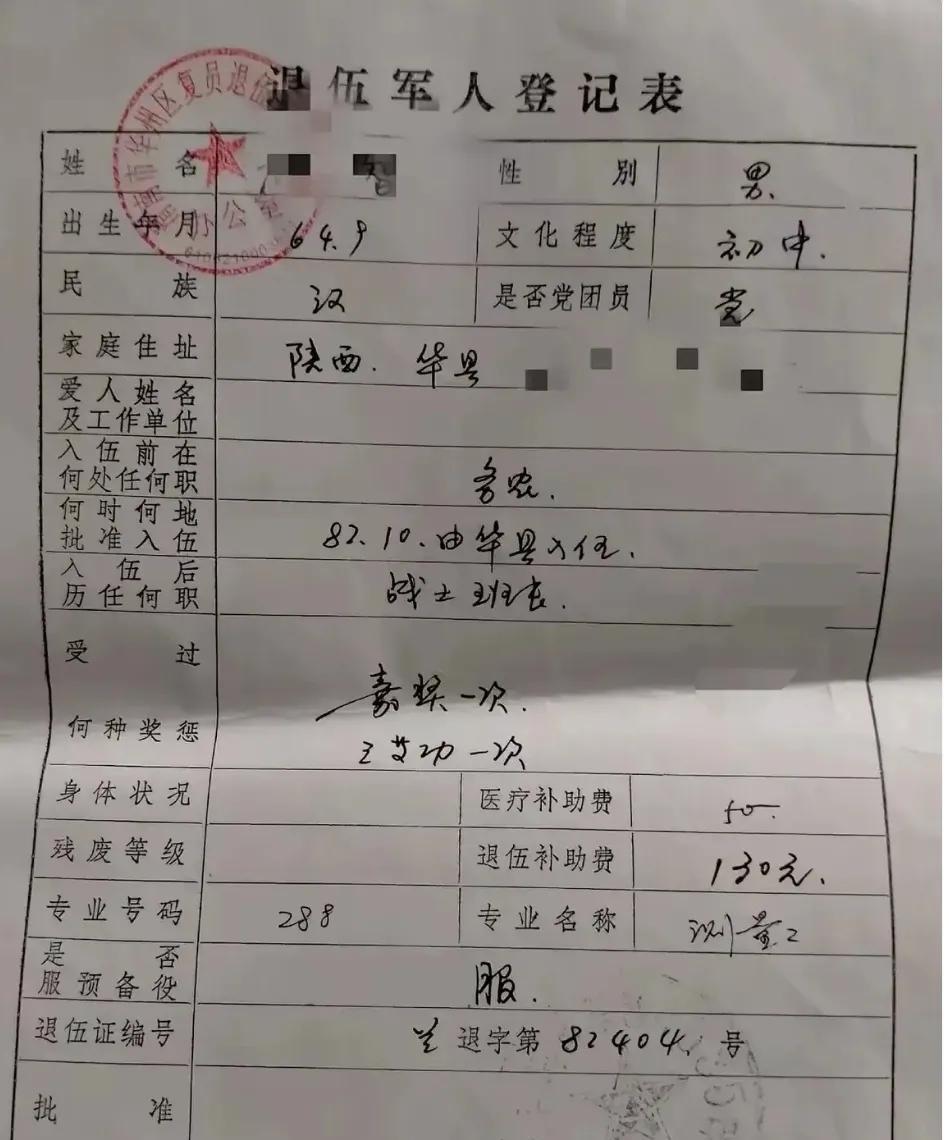 退伍军人登记表
渭南市华州区复员退伍
办公室
姓名 智 性别 男.
出生年月 64.9 文化程度 初中.
民族 汉 是否党团员 党
家庭住址 陕西. 华县
爱人姓名
及工作单位
入伍前在
何处任何职 务农.
何时何地
批准入伍 82.10.由华县入伍.
入伍后
历任何职 战士 班长.
受过
何种奖惩 嘉奖一次.
三等功一次
身体状况 医疗补助费 50.
残废等级 退伍补助费 130元.
专业号码 288 专业名称 测量
是否
服预备役 服.
退伍证编号 兰退字第82404号
批准